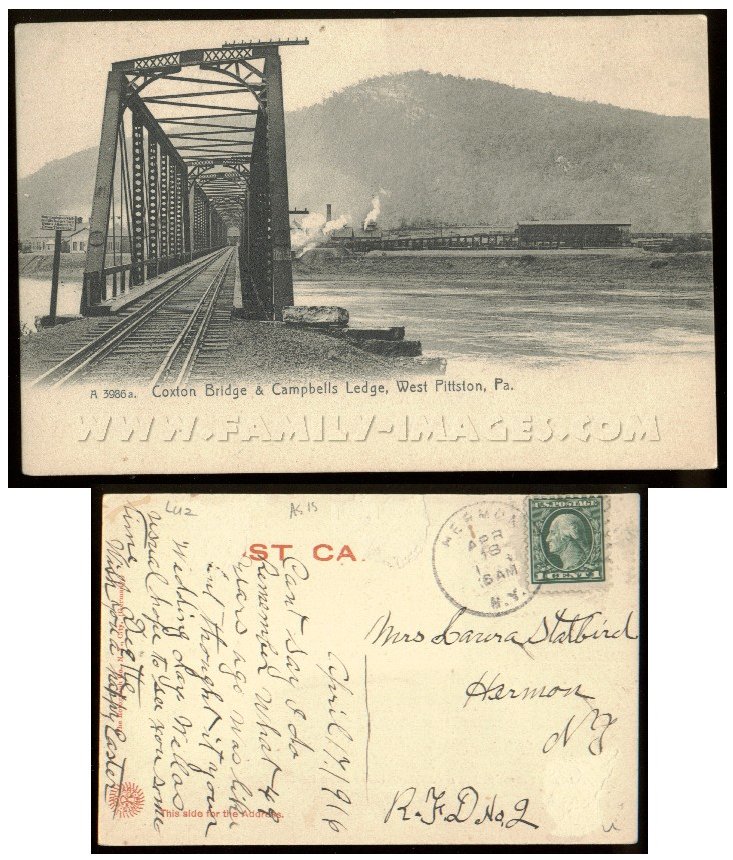 A 3986a. Coxton Bridge & Campbells Ledge, West Pittston, Pa.
WWW.FAMILY-IMAGES.COM
Luz
AS IS
ST CA
HERMO
APR
18
6 AM
N.Y.
U.S. POSTAGE
1 CENT 1
April 17, 1916
Cant say I do
Remember What 49
years ago was like
int thought it your
Wedding day Well as
usual hope to see you some
time
With you a happy Easter
Mrs Laura Statbird
Hermon
NY
R.F.D No. 2
This side for the Address.